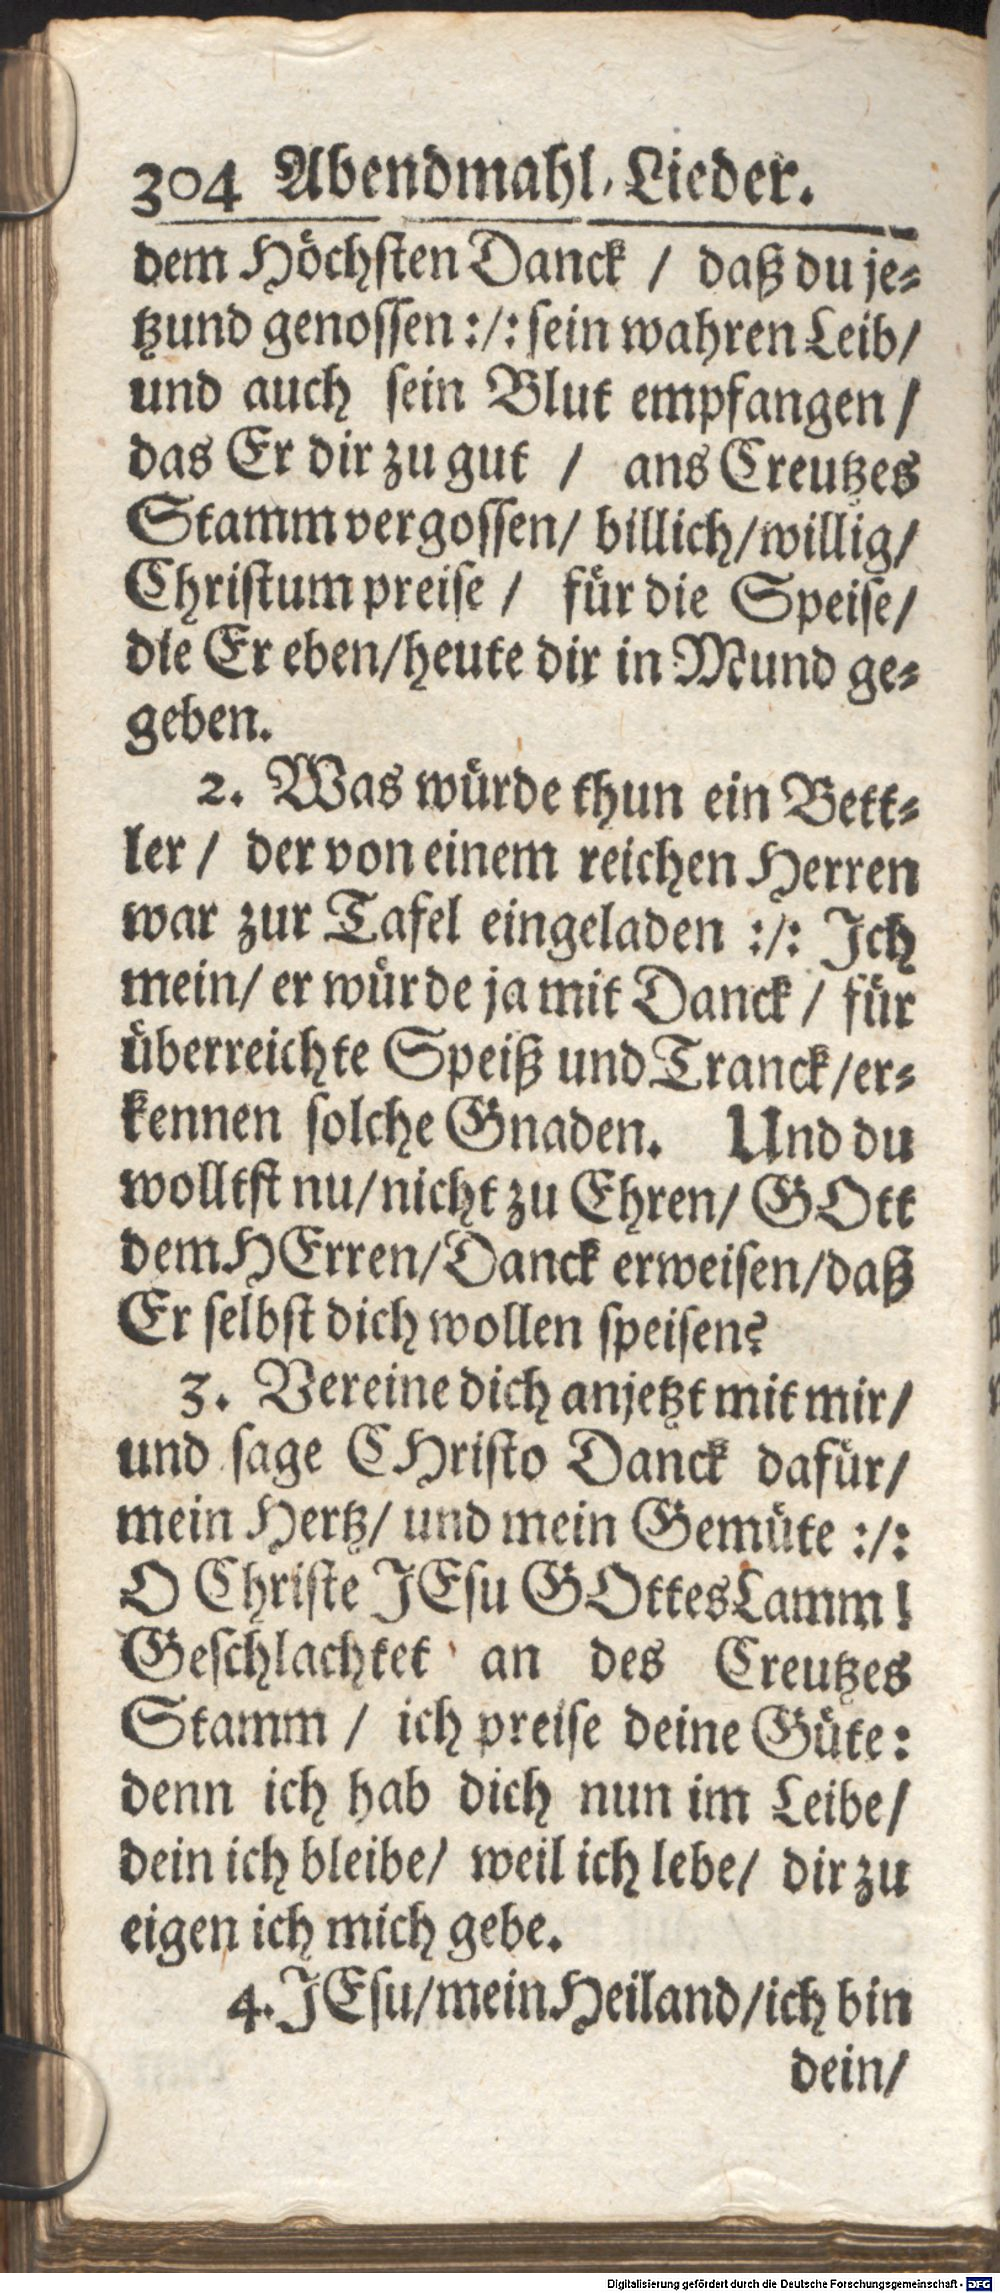 304 Abendmahl-Lieder.
dem Höchsten Danck / daß du je-
tzund genossen :/: sein wahren Leib/
und auch sein Blut empfangen /
das Er dir zu gut / ans Creutzes
Stamm vergossen/ billich/willig/
Christum preise / für die Speise/
die Er eben/heute dir in Mund ge-
geben.
2. Was würde thun ein Bett-
ler / der von einem reichen Herren
war zur Tafel eingeladen :/: Ich
mein/ er würde ja mit Danck / für
überreichte Speiß und Tranck/er-
kennen solche Gnaden. Und du
wolltst nu/nicht zu Ehren/ GOtt
dem HErren/Danck erweisen/daß
Er selbst dich wollen speisen?
3. Vereine dich anjetzt mit mir/
und sage CHristo Danck dafür/
mein Hertz/ und mein Gemüte :/:
O Christe JEsu GOttes Lamm!
Geschlachtet an des Creutzes
Stamm / ich preise deine Güte:
denn ich hab dich nun im Leibe/
dein ich bleibe/ weil ich lebe/ dir zu
eigen ich mich gebe.
4. JEsu/mein Heiland/ich bin
dein/
Digitalisierung gefördert durch die Deutsche Forschungsgemeinschaft - DFG